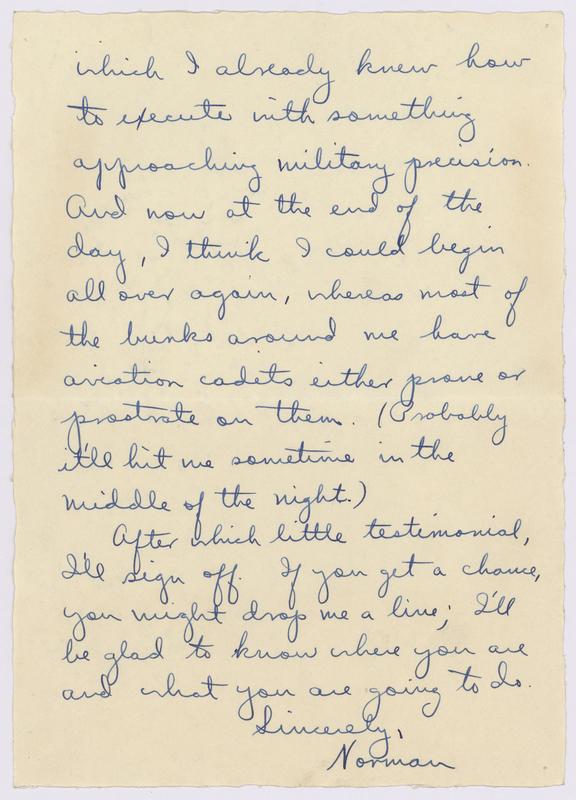 which I already knew how
to execute with something
approaching military precision.
And now at the end of the
day, I think I could begin
all over again, whereas most of
the bunks around me have
aviation cadets either prone or
prostrate on them. (Probably
it'll hit me sometime in the
middle of the night.)
After which little testimonial,
I'll sign off. If you get a chance,
you might drop me a line; I'll
be glad to know where you are
and what you are going to do.
Sincerely,
Norman